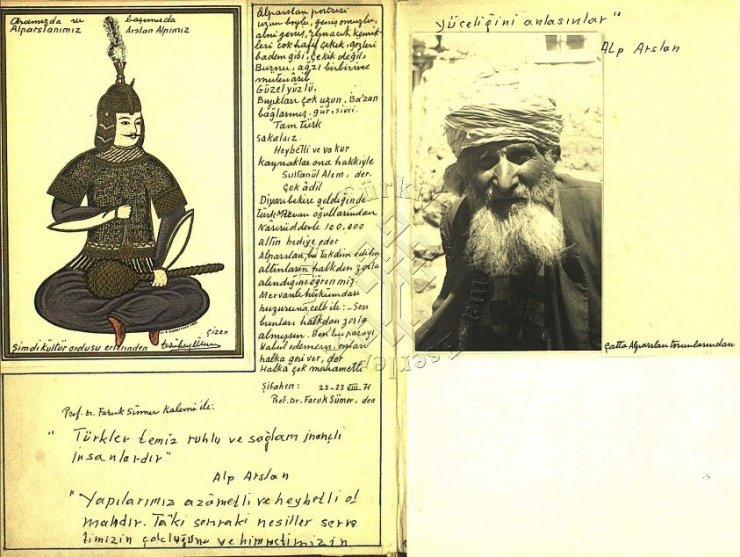 Aramızda su
Alparslanımız
başımızda
Arslan Alpımız
Şimdi kültür ordusu erlerinden
çizen
Alparslan portresi
uzun boylu, geniş omuzlu,
alnı geniş, elmacık kemik-
leri çok hafif çekik, gözleri
badem gibi, çekik değil.
Burnu, ağzı birbirine
mütenâsib
Güzel yüzlü.
Bıyıkları çok uzun. Ba'zan
bağlarmış. gür, sivri.
Tam Türk
sakalsız
Heybetli ve vakur
Kaynaklar ona hakkıyle
Sultanül Alem, der.
Çok âdil
Diyarıbekire geldiğinde
Türk Mervan oğullarından
Nâsırüddevle 100.000
altın hediye eder
Alparslan, bu takdim edilen
altınların halkdan zorla
alındığını öğrenmiş
Mervanlı hükümdarı
huzuruna celb ile: -Sen
bunları halkdan zorla
almışsın. Ben bu parayı
kabul edemem. onları
halka geri ver, der
Halka çok muhametli
Şifahen: 22-23 VIII-71
Prof. Dr. Faruk Sümer, den
Prof. Dr. Faruk Sümer Kalemi ile:
" Türkler temiz ruhlu ve sağlam inançlı
insanlardır"
Alp Arslan
"Yapılarımız azâmetli ve heybetli ol
malıdır. Tâ'ki sonraki nesiller serve
timizin çokluğunu ve himmetimizin
yüceliğini anlasınlar"
Alp Arslan
çatta Alparslan torunlarından